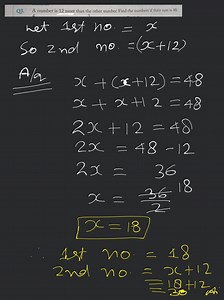 Q5. A number is 12 more than the other number. Find the numbers if their sum is 48.
Let 1st no. = x
So 2nd no. = (x+12)
A/q
x + (x+12) = 48
x + x + 12 = 48
2x + 12 = 48
2x = 48 - 12
2x = 36
x = 36/2 18
x = 18
∴ 1st no = 18
2nd no. = x+12
= 18+12
= 30